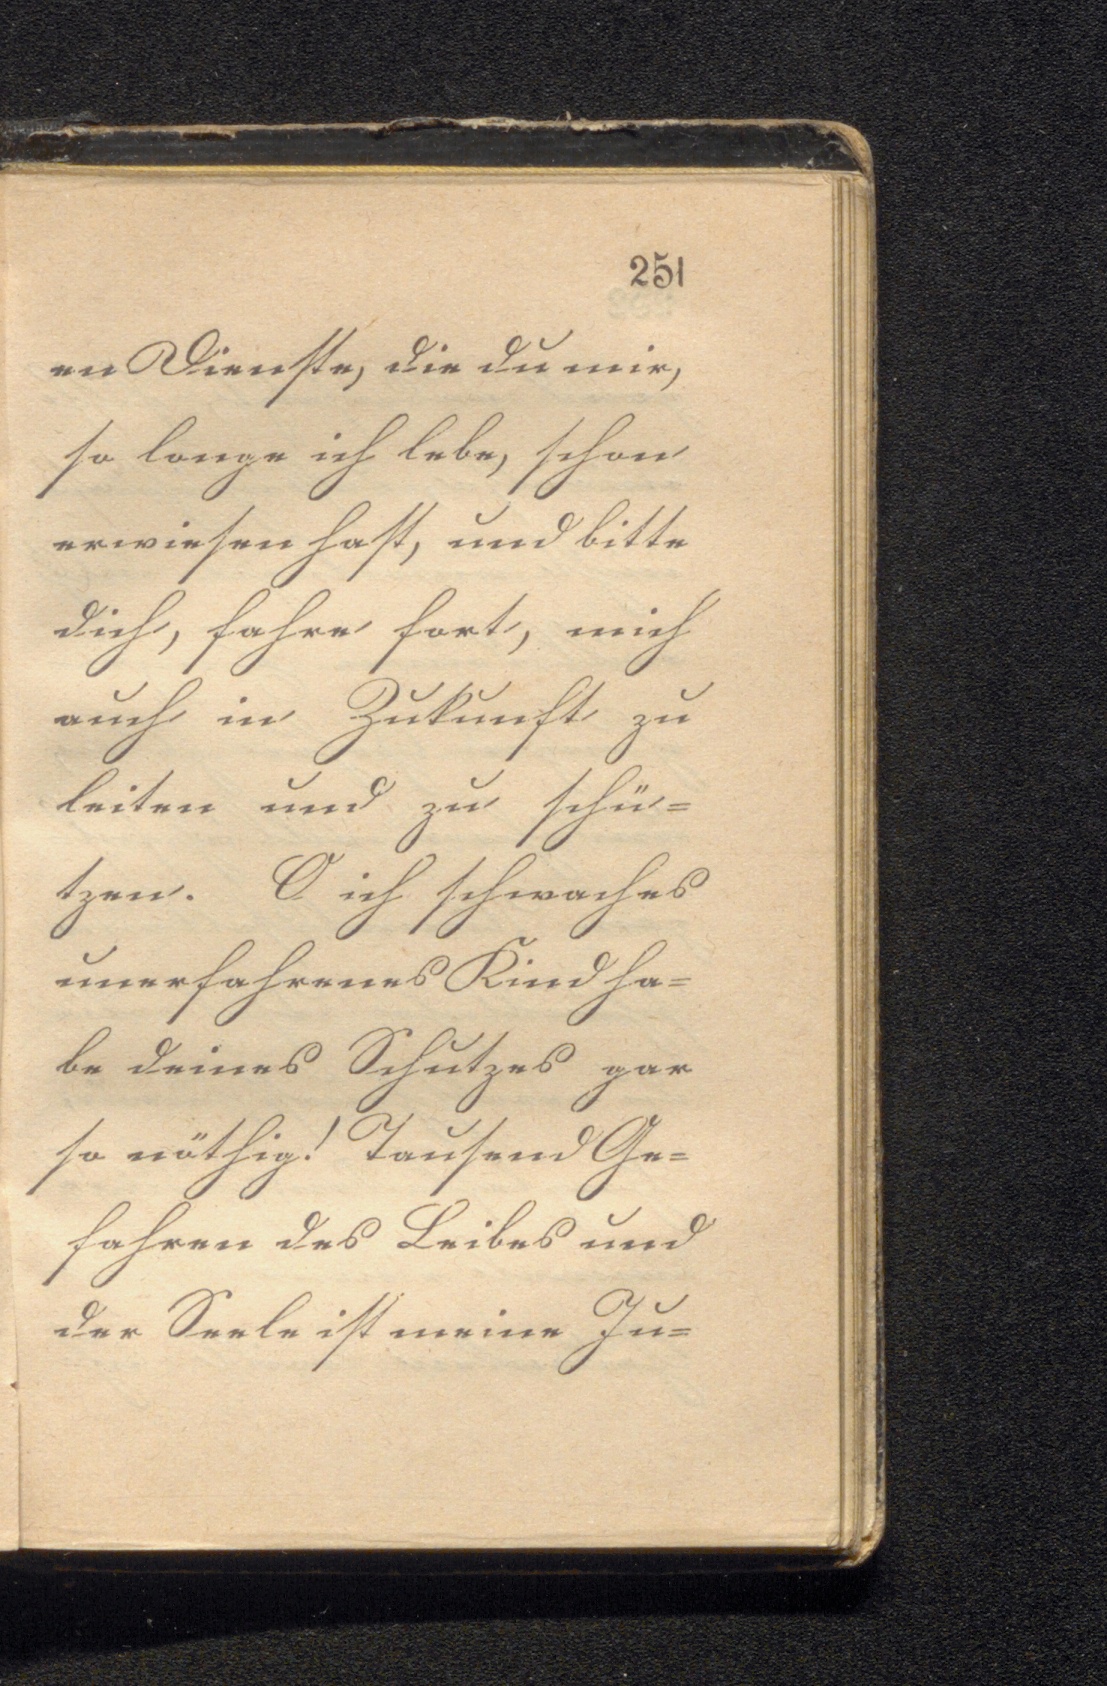 251
en Dienste, die du mir,
so lange ich lebe, schon
erwiesen hast, und bitte
dich, fahre fort, mich
auch in Zukunft zu
leiten und zu schü=
tzen. O ich schwaches
unerfahrenes Kind ha=
be deines Schutzes gar
so nöthig! Tausend Ge=
fahren des Leibes und
der Seele ist meine Ju=